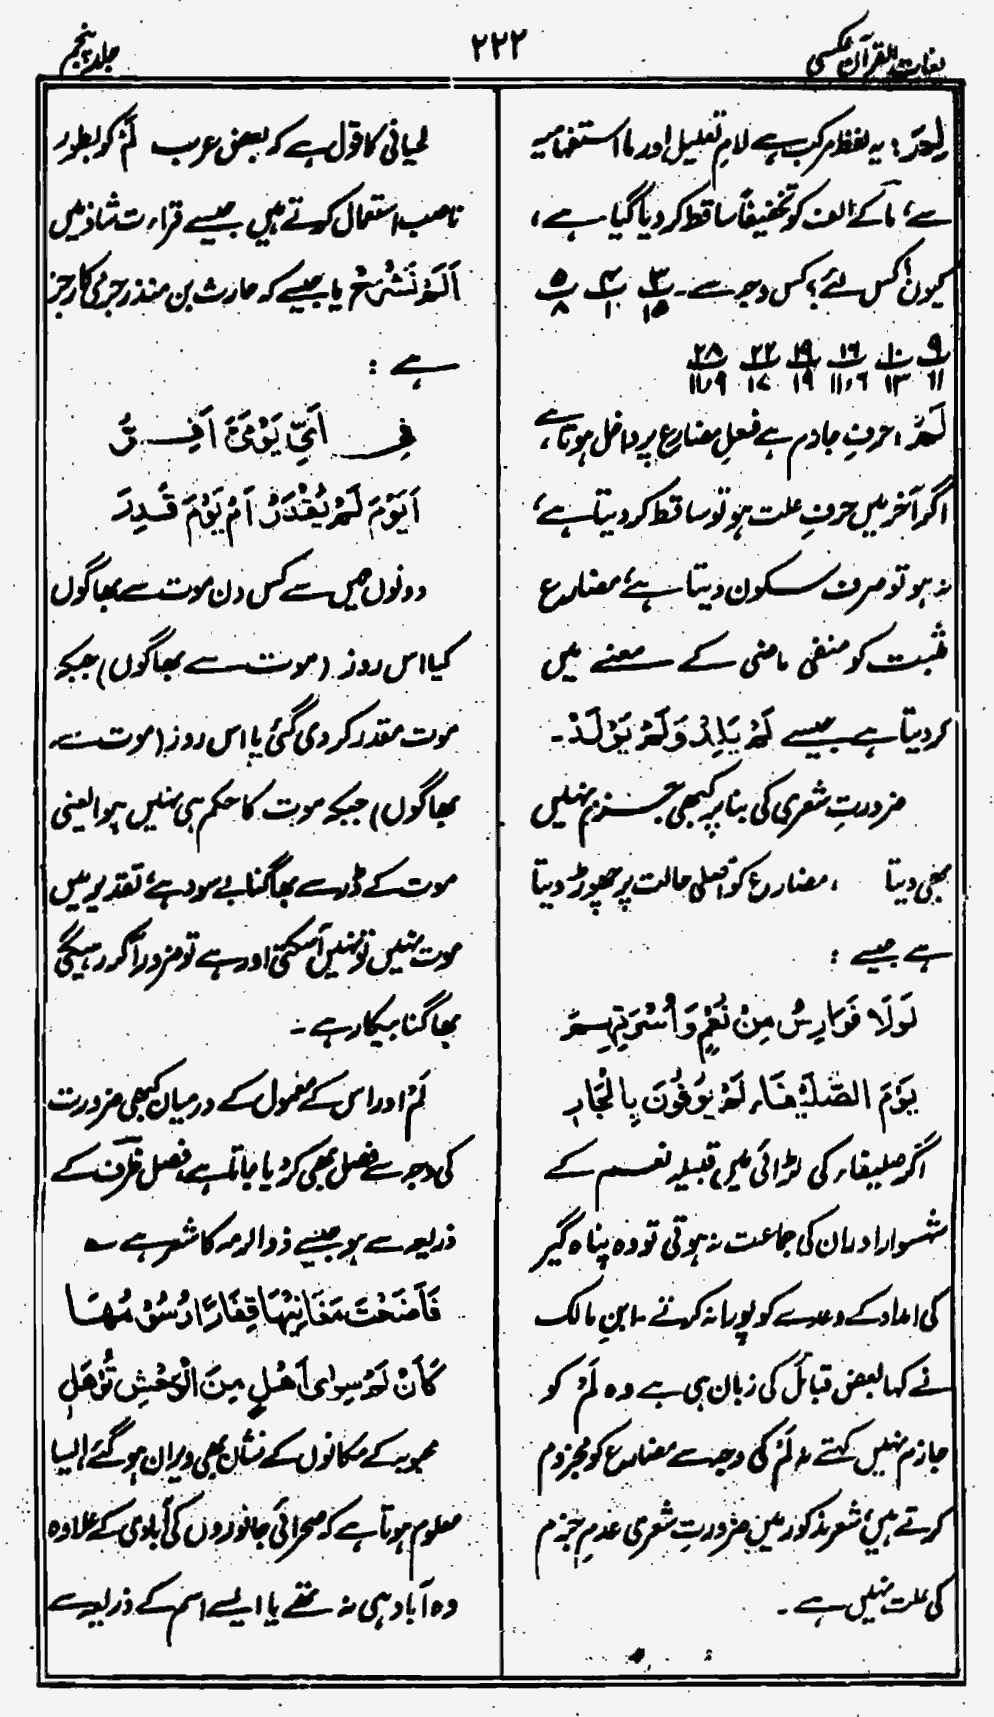 لغات القرآن عکسی
۲۲۲
جلد پنجم
لِمَ: یہ لفظ مرکب ہے لامِ تعلیل اور ما استفہامیہ
سے، ما کے الف کو تخفیفاً ساقط کر دیا گیا ہے،
کیوں؟ کس لئے؟ کس وجہ سے۔ پ۳/۱۵ پ۴/۱ پ۵/۸
پ۹/۱۱ پ۱۰/۱۳ پ۱۶/۱۱،۶ پ۱۹/۱۹ پ۲۲/۱۷ پ۲۸/۱۱،۹
لَمْ، حرفِ جازم ہے فعلِ مضارع پر داخل ہوتا ہے،
اگر آخر میں حرفِ علت ہو تو ساقط کر دیتا ہے،
نہ ہو تو صرف سکون دیتا ہے، مضارع
مثبت کو منفی ماضی کے معنے میں
کر دیتا ہے جیسے لَمْ یَلِدْ وَلَمْ یُوْلَدْ۔
ضرورتِ شعری کی بنا پر کبھی جزم نہیں
بھی دیتا ، مضارع کو اصلی حالت پر چھوڑ دیتا
ہے جیسے :
لَوْلَا فَوَارِسُ مِنْ نُعْمٍ وَاُسْرَتِهِمْ
یَوْمَ الصُّلَیْفَاءِ لَمْ یُوْفُوْنَ بِالْجَارِ
اگر صلیفاء کی لڑائی میں قبیلہ نعم کے
شہسوار اور ان کی جماعت نہ ہوتی تو وہ پناہ گیر
کی امداد کے وعدے کو پورا نہ کرتے۔ ابنِ مالک
نے کہا بعض قبائل کی زبان ہی ہے وہ لَمْ کو
جازم نہیں کہتے نہ لَمْ کی وجہ سے مضارع کو مجزوم
کرتے ہیں، شعر مذکور میں ضرورتِ شعری عدمِ جزم
کی علت نہیں ہے۔
لحیانی کا قول ہے کہ بعض عرب لَمْ کو بطور
ناصب استعمال کرتے ہیں جیسے قراءت شاذ میں
اَلَمْ نَشْرَحَ یا جیسے کہ حارث بن منذر جرمی کا رجز
ہے :
فِی اَیِّ یَوْمَیَّ اَفِرُّ
اَیَوْمَ لَمْ یُقْدَرَ اَمْ یَوْمَ قُدِرَ
دونوں میں سے کس دن موت سے بھاگوں
کیا اس روز (موت سے بھاگوں) جبکہ
موت مقدر کر دی گئی یا اس روز (موت سے
بھاگوں) جبکہ موت کا حکم ہی نہیں ہوا یعنی
موت کے ڈر سے بھاگنا بے سود ہے، تقدیر میں
موت نہیں تو نہیں آسکتی اور ہے تو ضرور آکر رہیگی
بھاگنا بیکار ہے۔
لَمْ اور اس کے معمول کے درمیان کبھی ضرورت
کی وجہ سے فصل بھی کر دیا جاتا ہے، فصل ظرف کے
ذریعہ سے ہو جیسے ذو الرمہ کا شعر ہے ؎
فَاَضْحَتْ مَغَانِیْهَا قِفَارًا رُسُوْمُهَا
کَاَنْ لَمْ سِوٰی اَهْلٍ مِنَ الْوَحْشِ تُؤْهَلِ
محبوبہ کے مکانوں کے نشان بھی ویران ہو گئے ایسا
معلوم ہوتا ہے کہ صحرائی جانوروں کی آبادی کے علاوہ
وہ آباد ہی نہ تھے یا ایسے اسم کے ذریعے